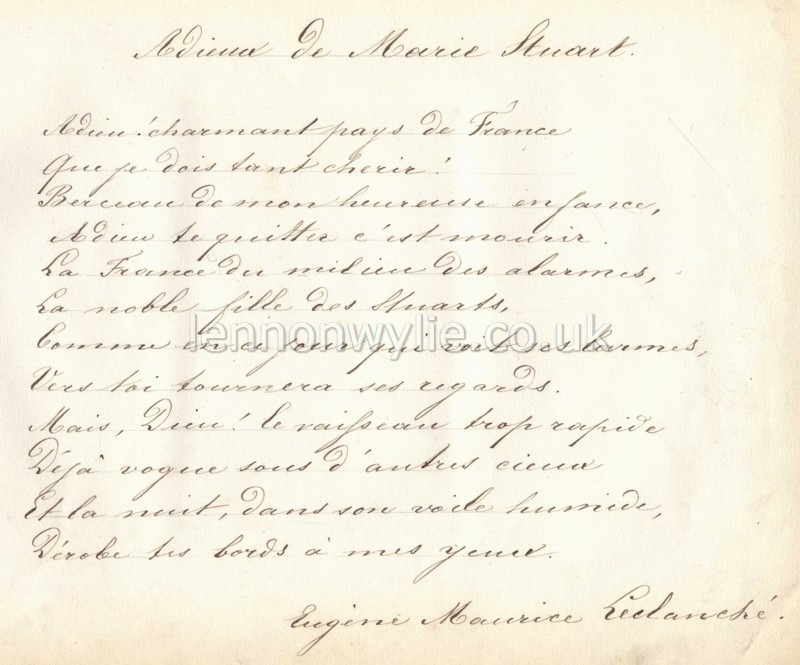 Adieux de Marie Stuart.
Adieu! charmant pays de France
Que je dois tant cherir!
Berceau de mon heureuse enfance,
Adieu te quitter c'est mourir.
La France du milieu des alarmes,
La noble fille des Stuarts,
lennonwylie.co.uk
Comme en ce jour qui voit ses larmes,
Vers toi tournera ses regards.
Mais, Dieu! le vaisseau trop rapide
Déjà vogue sous d'autres cieux
Et la nuit, dans son voile humide,
Dérobe tes bords à mes yeux.
Eugène Maurice Leclanché.